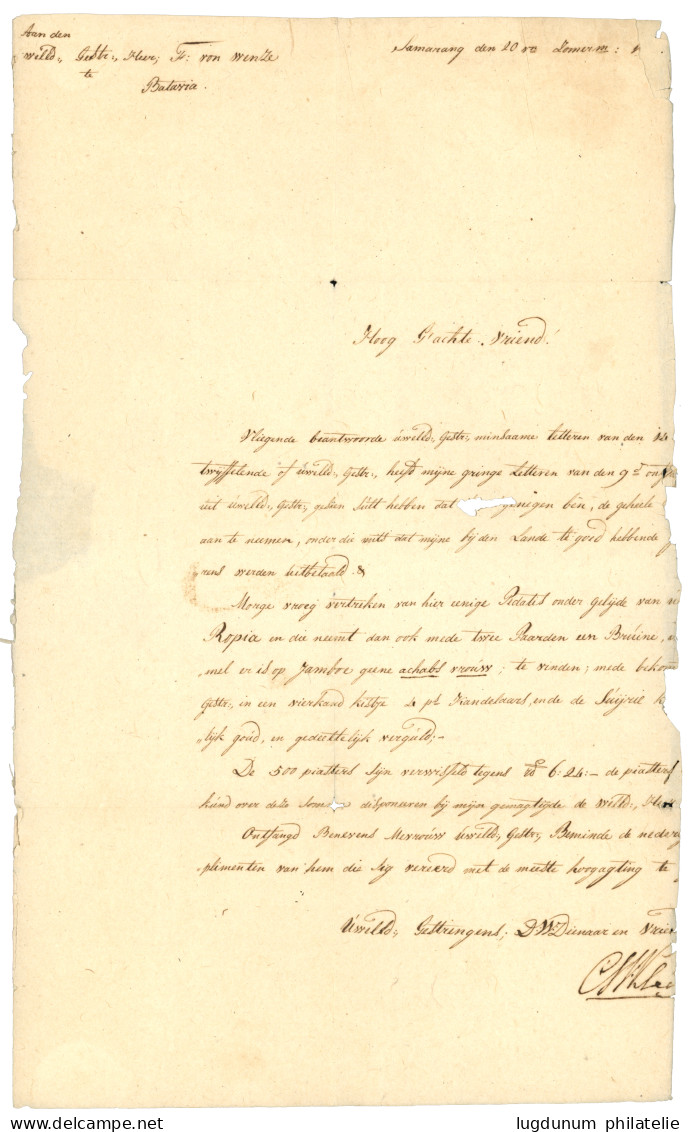 Aan den
Weled., Gestr., Heer, F: von Wenze
te
Batavia.
Samarang den 20 Zomerm:
Hoog G'achte Vriend!
Vliegende beantwoorde úweled., Gestr., minsaame letteren van den 14
twyffelende of úweled., Gestr., heeft mijne gringe Letteren van den 9d
uit úweled., Gestr., sien Sult hebben dat genegen ben, de geheele
aan te neemen, onder die mits dat mijne bij den Lande te goed hebbende
rens werden uitbetaald.
Morge vroeg vertreken van hier eenige Pedatis onder gelijde van
Ropia en die neemt dan ook mede twee Paarden een Brúine,
mel er is op Jamboe geene achabs vroúw; te vinden; mede
Gestr., in een vierkand kistje 4 ps Kandelaars, ende de
lijk goúd, en gedeeltelijk vergúld;-
De 500 piasters sijn verwisseld tegens 6:24:- de piasters
kund over deze Som disponeren bij mijn gemagtijde de Weled.,
Ontfangd Benevens Mevroúw úweled., Gestr., Beminde de
plimenten van hem die sig vereerd met de meeste hoogagting te
Úweled., Gestrengens, DW Dienaar en
lugdunum philatelie